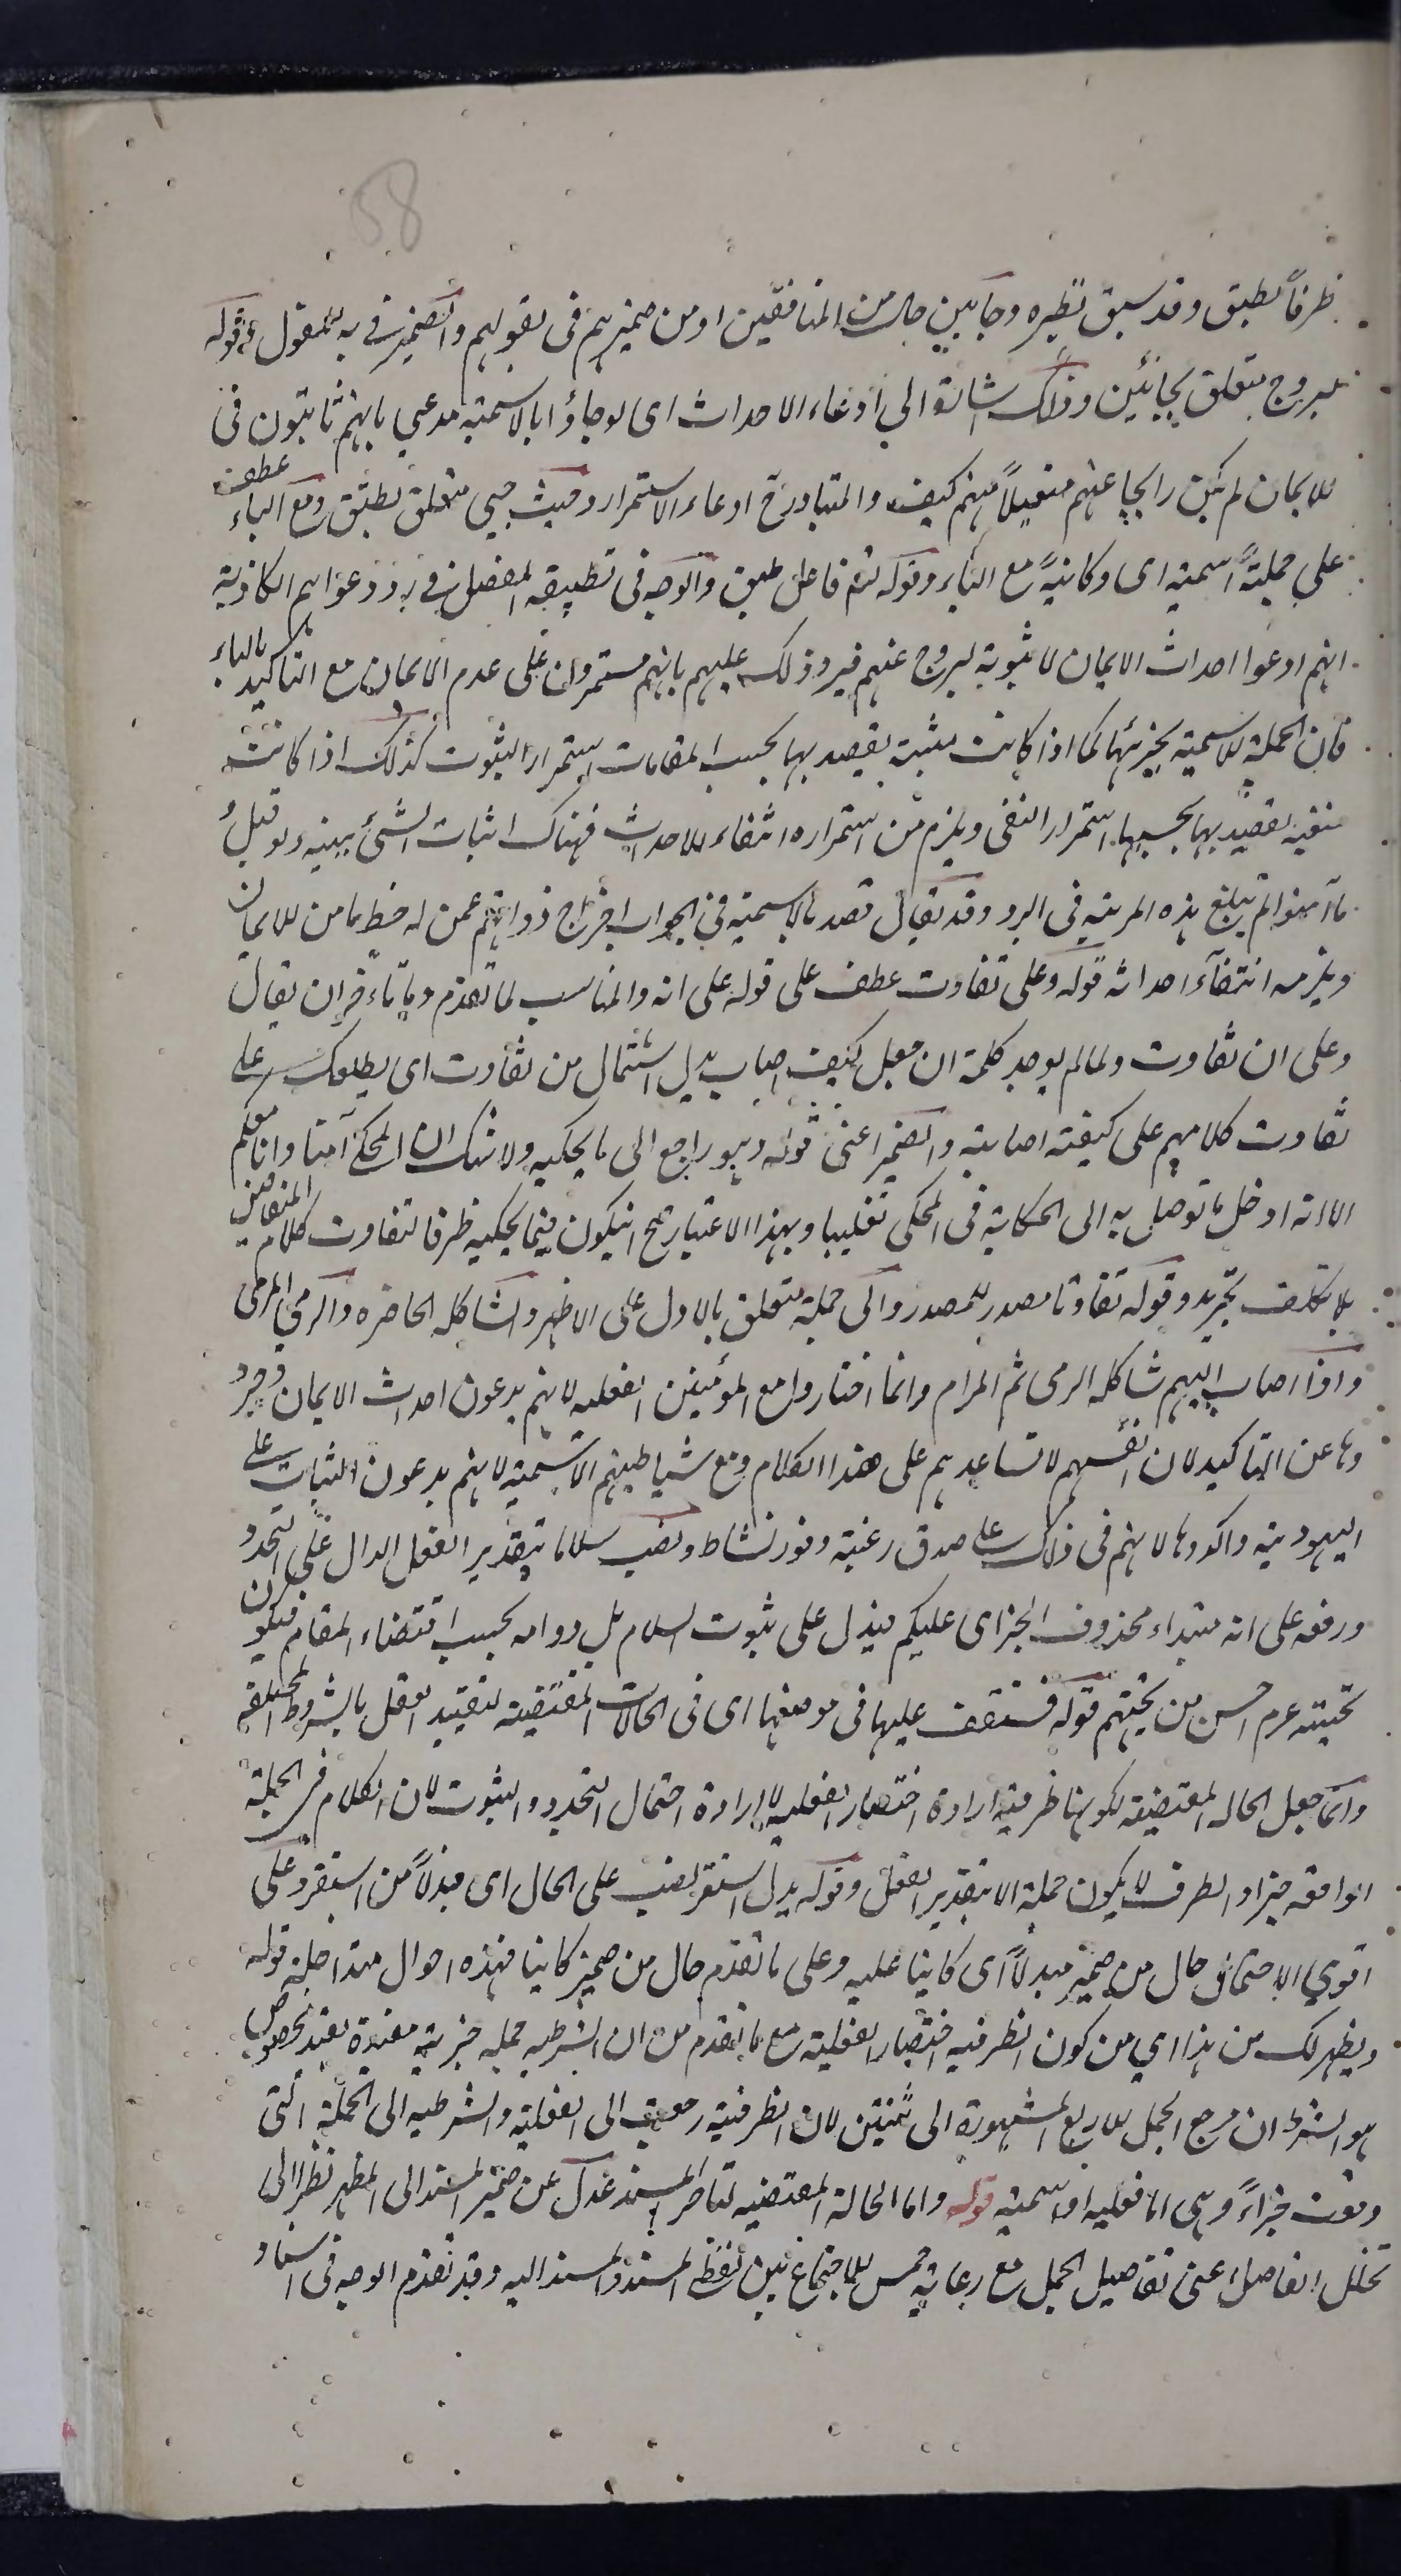 58
ظرفاً لطبق وقد سبق نظيره وجائين حال من المنافقين او من ضميرهم فى بقولهم والضمير فى به للمقول وقوله
ليروج متعلق بجائين وذلك اشارة الي ادعاء الاحداث اى لو جاؤا بالاسمية مدعي بانهم ثابتون فى
الايمان لم يكن رايجا عنهم متقبلاً منهم كيف والمتبادر ح ادعاء الاستمرار وحيث جيئ متعلق بطبق ومع الباء عطف
علي جملية اسمية اى وكائنة مع الباء وقوله لم فاعل طبق والوجه فى تطبيقه المفصل فى رد دعواهم الكاذبة
انهم ادعوا احداث الايمان لا ثبوته ليروج عنهم فيرد ذلك عليهم بانهم مستمرون على عدم الايمان مع التاكيد بالباء
فان الجملة الاسمية بجزئها كما اذا كانت مثبتة يقصد بها بحسب المقامات استمرار الثبوت كذلك اذا كانت
منفية يقصد بها بحسبها استمرار النفى ويلزم من استمراره انتفاء الاحداث فهناك اثبات الشئ ببينة ولو قيل
ما آمنوا لم يبلغ هذه المرتبة فى الرد وقد يقال قصد بالاسمية فى الجواب اخراج ذواتهم عمن له حظ ما من الايمان
ويلزمه انتفاء احداثه قوله وعلى تفاوت عطف على قوله على انه والمناسب لما تقدم وما تأخر ان يقال
وعلى ان تفاوت ولما لم يوجد كلمة ان جعل كيف اصاب بدل اشتمال من تفاوت اى يطلعك على
تفاوت كلامهم على كيفية اصابته والضمير اعنى قوله وهو راجع الى ما يحكيه ولا شك ان المحكى آمنا وانا معكم
الا انه ادخل ما توصل به الى الحكاية فى المحكى تغليبا وبهذا الاعتبار صح ان يكون فيما يحكيه ظرفا لتفاوت كلام المنافقين
بلا تكلف تجريد وقوله تفاوتا مصدر للمصدر والى جملة متعلق بالاول على الاظهر والشاكلة الحاضرة والرمي المرمى
واذا اصاب السهم شاكلة الرمى تم المرام وانما اختاروا مع المؤمنين الفعلية لانهم يدعون احداث الايمان وجرد
وها عن التاكيد لان انفسهم لا تساعدهم على هذا الكلام ومع شياطينهم الاسمية لانهم يدعون الثبات على
اليهودية واكدوها لانهم فى ذلك على صدق رغبة وفور نشاط ونصب سلاما بتقدير الفعل الدال على التجدد
ورفعه على انه مبتداء محذوف الخبر اى عليكم فيدل على ثبوت السلام بل دوامه بحسب اقتضاء المقام فيكون
تحيته عم احسن من تحيتهم قوله فستقف عليها فى موضعها اى فى الحالات المقتضية لتقييد الفعل بالشروط المختلفة
وانما جعل الحالة المقتضية لكونها ظرفية ارادة اختصار الفعلية لا ارادة احتمال التجدد والثبوت لان الكلام فى الجملة
الواقعة خبرا والظرف لا يكون جملة الا بتقدير الفعل وقوله بدل استقر نصب على الحال اى مبدلاً من استقر وعلى
اقوى الاحتمالين حال من ضمير مبدلاً اى كائنا عليه وعلى ما تقدم حال من ضمير كائنا فهذه احوال متداخلة قوله
ويظهر لك من هذا اي من كون الظرفية اختصار الفعلية مع ما تقدم من ان الشرطية جملة خبرية مقيدة بقيد مخصوص
هو الشرط ان مرجع الجمل الاربع المشهورة الى ثنتين لان الظرفية رجعت الى الفعلية والشرطية الى الجملة التى
وقعت جزاءً وهى اما فعلية او اسمية قوله واما الحالة المقتضية لتاخر المسند عدل عن ضمير المسند الى المظهر نظرا الى
تخلل الفاصل اعنى تفاصيل الجمل مع رعاية حسن الاجتماع بين لفظى المسند والمسند اليه وقد تقدم الوجه فى اسناد